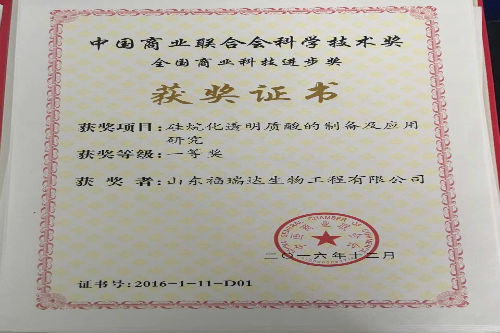 中国商业联合会科学技术奖
全国商业科技进步奖
获奖证书
获奖项目：硅烷化透明质酸的制备及应用
研究
获奖等级：一等奖
获奖者：山东福瑞达生物工程有限公司
二〇一六年十二月
证书号：2016-1-11-D01